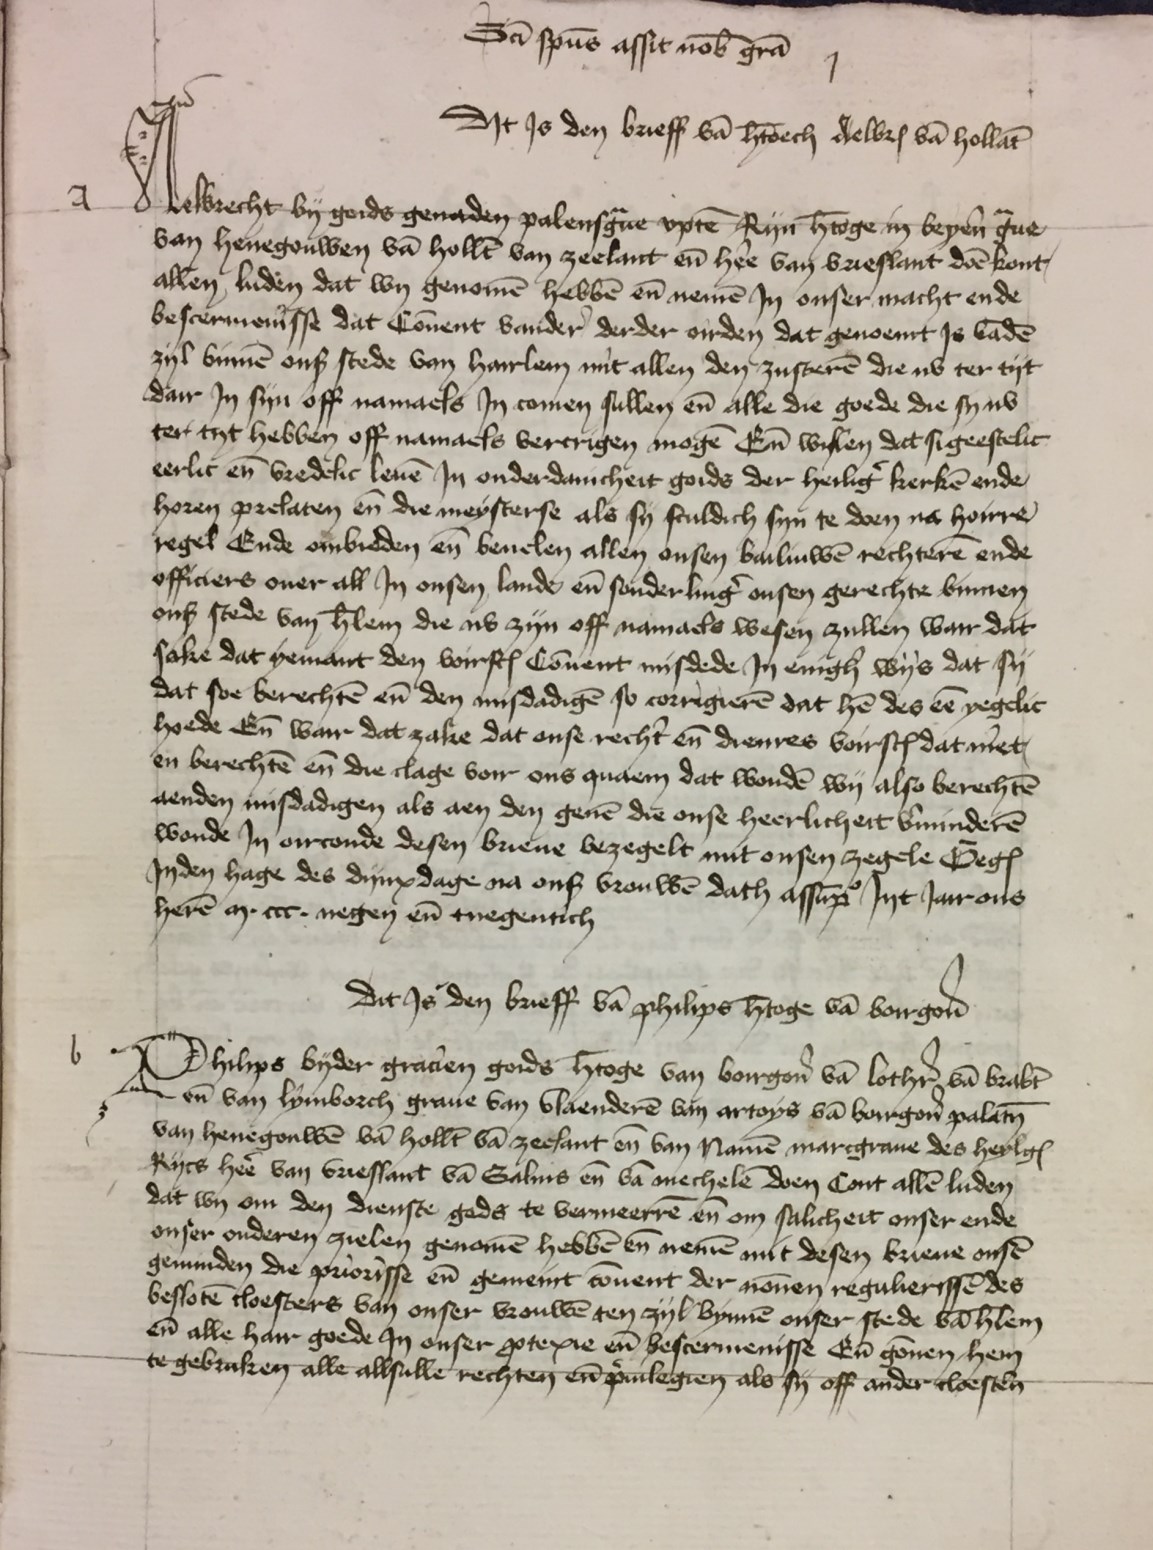 Sci spūs assit nob grā
1
Dit Is den brieff vā htoech Aelbr vā hollāt
a
Aelbrecht bij goids genaden palensgue opte Rijn htoge in beyern gue
van henegouwen vā hollt van zeelant eñ hēe van vrieslant doē kont
allen luden dat wy genomē hebbē eñ nemē In onser macht ende
beschermenisse dat Cōuent vander derder oirden dat genoemt Is vādē
zijl binnē onß stede van hairlem mit allen den zusterē die nv ter tijt
dair In sijn off namaels In comen sullen eñ alle die goede die sy nv
ter tyt hebben off namaels vercrigen mogē Eñ willen dat si geestelic
eerlic eñ vredelic leuē In onderdanicheit goids der heilig kerkē ende
horen prelaten eñ die meysterse als sy sculdich sijn te doen na hoirre
regel Ende ombieden eñ beuelen allen onsen bailiuwē rechterē ende
officiers ouer all In onsen lande eñ sonderling onsen gerechte binnen
onß stede van hlem die nv zijn off namaels wesen zullen wair dat
sake dat yemant den voirs Cōuent misdede In enigh wijs dat sij
dat soe berechtē eñ den misdadigē so corrigierē dat hē des eē yegelic
hoede Eñ wair dat zake dat onse recht eñ dienres voirs dat niet
en berechtē eñ die clage voir ons quaem dat woudē wij also berechtē
aenden misdadigen als aen den genē die onse heerlicheit vminderē
woude In oirconde desen brieue bezegelt mit onsen zegele Geg
Inden hage des dijnxdage na onß vrouwē dach assūp Int Jair ons
herē m ccc negen eñ tnegentich
Dit Is den brieff vā philips htoge vā boirgoñ
b
Philips bijder gracien goids htoge van boirgoñ vā lothr vā brabt
eñ van lymborch graue van vlaenderē van artoys vā boirgoñ palatn
van henegouwē vā hollt vā zeelant eñ van Namē marcgraue des heylg
Rijcs heē van vrieslant vā Salins eñ vā mechelē doen Cont allē luden
dat wy om den dienste gods te vermeerrē eñ om salicheit onser ende
onser ouderen zielen genomē hebbē eñ nemē mit desen brieue onsē
geminden die priorisse eñ gemeint cōuent der nonen regulierissē des
beslotē cloesters van onser vrouwē ten zijl bynnē onser stede vā hlem
eñ alle hair goede In onser protexie eñ beschermenisse Eñ gōnen hem
te gebruken alle alsulke rechten eñ priuilegien als sy off ander cloestern